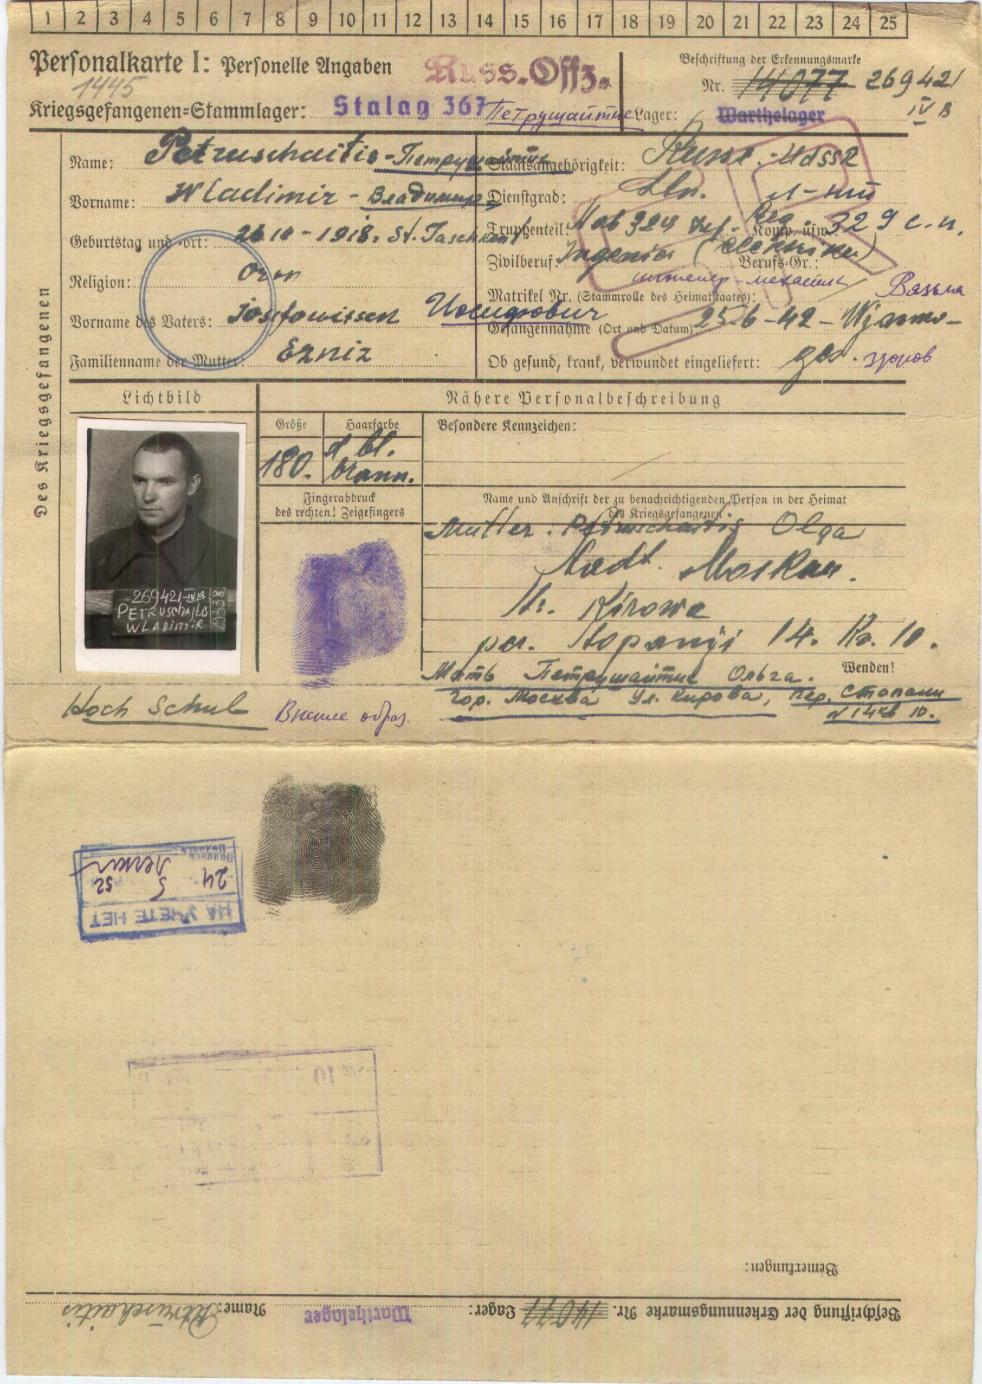 1 2 3 4 5 6 7 8 9 10 11 12 13 14 15 16 17 18 19 20 21 22 23 24 25
Personalkarte I: Personelle Angaben
Russ. Offz.
Beschriftung der Erkennungsmarke
1445
Nr. 14077 269421
IV B
Kriegsgefangenen-Stammlager: Stalag 367 Петрушайтис
Lager: Warthelager
Des Kriegsgefangenen
Name: Petruschaitis - Петрушайтис
Vorname: Wladimir - Владимир
Geburtstag und -ort: 26 10 - 1918. St. Taschkent
Religion:
Vorname des Vaters: Josifowitsch Иосифович
Familienname der Mutter:
Staatsangehörigkeit: Russe - UdSSR
Dienstgrad: Ltn. л-нт
Truppenteil: 324 Reg. Komp. usw.: 329 с.п.
Zivilberuf: Ingenör Berufs-Gr.:
инженер-механик
Matrikel Nr. (Stammrolle des Heimatstaates):
Вязьма
Gefangennahme (Ort und Datum): 25.6-42 -
Ob gesund, krank, verwundet eingeliefert: ges. здоров
Lichtbild
Nähere Personalbeschreibung
Größe Haarfarbe
180. d. bl. braun.
Besondere Kennzeichen:
Fingerabdruck
des rechten! Zeigefingers
Name und Anschrift der zu benachrichtigenden Person in der Heimat
des Kriegsgefangenen
Mutter: Petruschaitis Olga
Stadt. Moskau.
Str. Kirowa
per. Stopanji 14. Kv. 10.
269421-IVB
PETRUSCHAITIS
WLADIMIR
Wenden!
Мать Петрушайтис Ольга.
гор. Москва Ул. Кирова, пер. Стопани
№ 14 кв 10.
Hoch Schul Высшее образ.
НА УЧЕТЕ НЕТ
24 5 52
10
Bemerkungen:
Beschriftung der Erkennungsmarke Nr. 14077 Lager: Warthelager Name: Petruschaitis